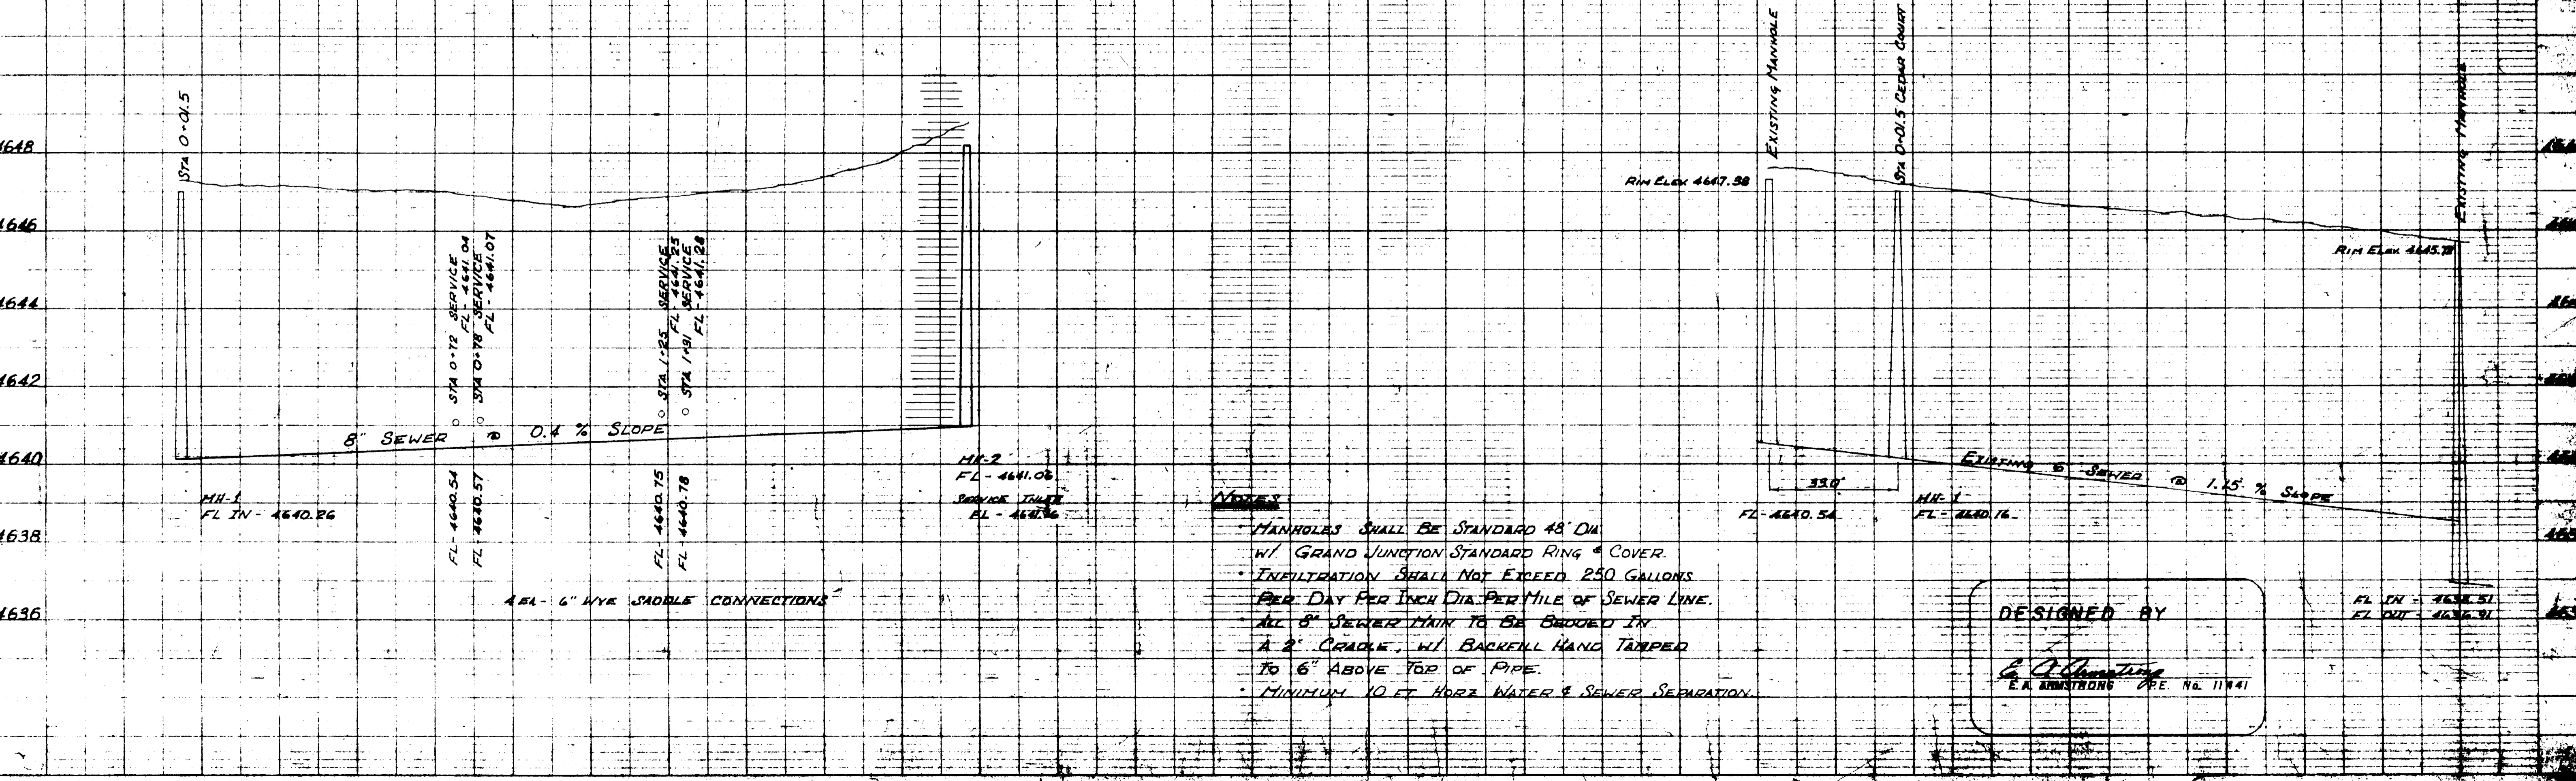 STA 0+01.5
4648
4646
4644
4642
4640
4638
4636
STA 0+72 SERVICE
FL - 4641.04
STA 0+78 SERVICE
FL - 4641.07
STA 1+25 SERVICE
FL - 4641.25
STA 1+31 SERVICE
FL - 4641.28
8" SEWER @ 0.4 % SLOPE
MH-1
FL IN - 4640.26
FL - 4640.54
FL - 4640.57
FL - 4640.75
FL - 4640.78
MH-2
FL - 4641.06
SERVICE INLET
4 EA - 6" WYE SADDLE CONNECTIONS
NOTES:
· MANHOLES SHALL BE STANDARD 48" DIA
W/ GRAND JUNCTION STANDARD RING & COVER.
· INFILTRATION SHALL NOT EXCEED 250 GALLONS
PER DAY PER INCH DIA PER MILE OF SEWER LINE.
· ALL 8" SEWER MAIN TO BE BEDDED IN
A 2" CRADLE, W/ BACKFILL HAND TAMPED
TO 6" ABOVE TOP OF PIPE.
· MINIMUM 10 FT HORZ WATER & SEWER SEPARATION.
EXISTING MANHOLE
STA 0+01.5 CEDAR COURT
EXISTING MANHOLE
RIM ELEV. 4647.38
RIM ELEV.
EXISTING SEWER @ 1.15 % SLOPE
33.0'
FL - 4640.54
MH-1
FL - 4640.16
FL IN - 4638.51
FL OUT - 4636.91
DESIGNED BY
E A Armstrong
E.A. ARMSTRONG P.E. No. 11441